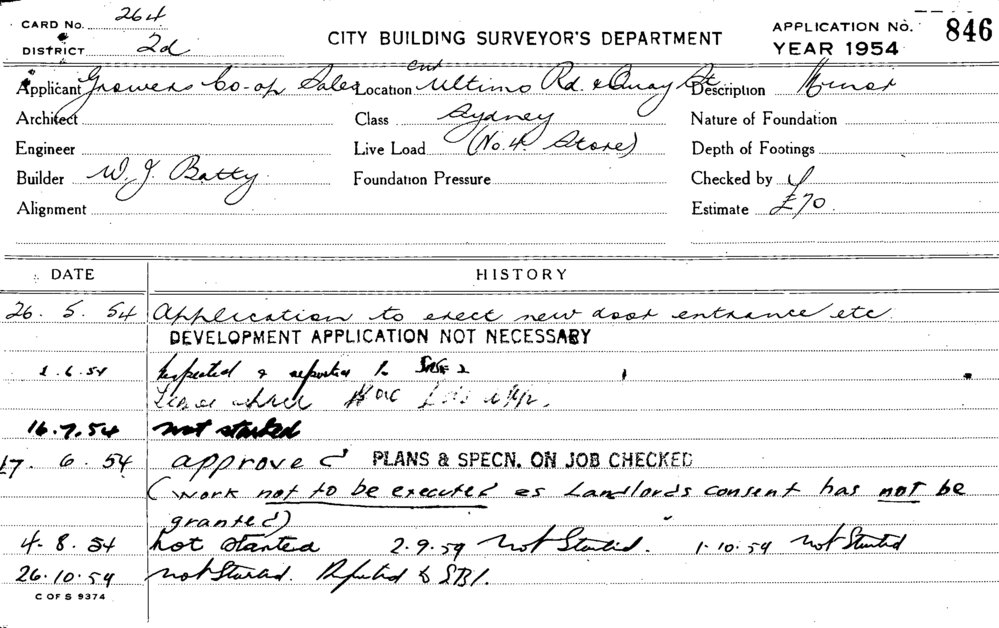 CARD No. 264
DISTRICT 2d
CITY BUILDING SURVEYOR'S DEPARTMENT
APPLICATION No. 846
YEAR 1954
Applicant Growers Co-op Sales Location cnr Ultimo Rd. & Quay St Description Minor
Architect Class Sydney Nature of Foundation
Engineer Live Load (No. 4. Store) Depth of Footings
Builder W. J. Batty Foundation Pressure Checked by
Alignment Estimate £70.
DATE HISTORY
26. 5. 54 Application to erect new door entrance etc
DEVELOPMENT APPLICATION NOT NECESSARY
1.6.54 Inspected & reported to
16.7.54 not started
17. 6. 54 approved PLANS & SPECN. ON JOB CHECKED
(work not to be executed as Landlords consent has not be
granted)
4. 8. 54 not started 2.9.54 not Started. 1.10.54 not Started
26.10.54 not Started. Reported to SBI.
C OF S 9374